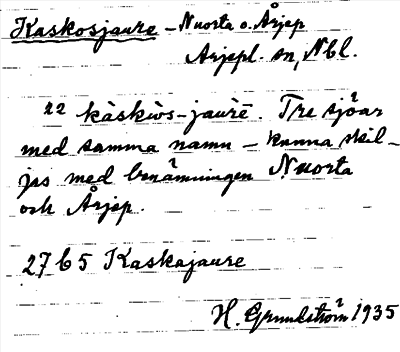 Kaskosjaure - Nuorta o. Årjep
Arjepl. sn, Nbl.
22 kàskùs-jaùrē. Tre sjöar
med samma namn - kunna skil-
jas med benämningen Nuorta
och Årjep.
2765 Kaskajaure
H. Grundström 1935